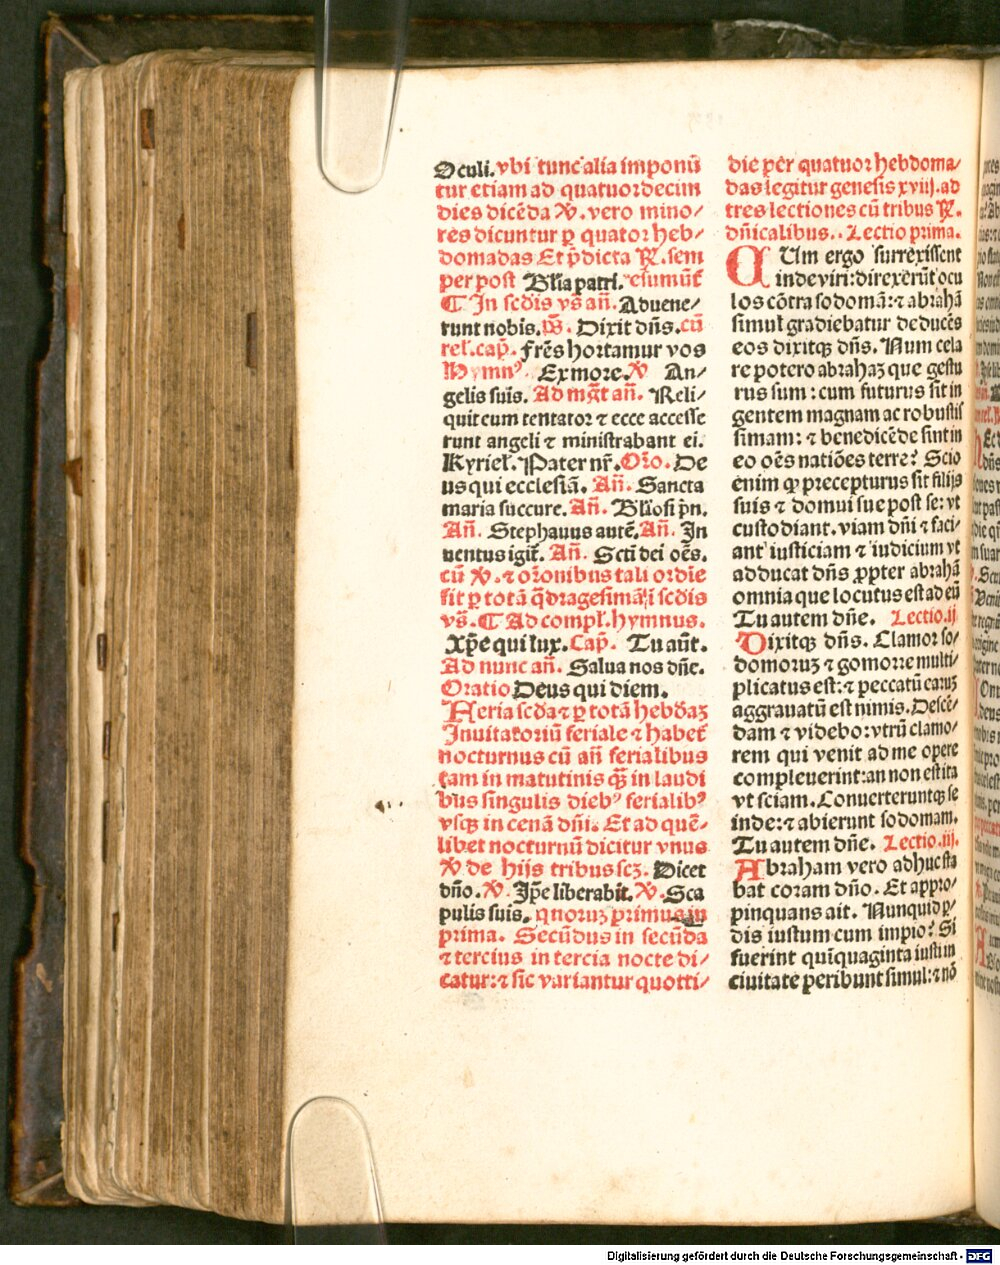 Oculi. vbi tunc alia imponũ
tur etiam ad quatuordecim
dies dicẽda ℣. vero mino⸗
res dicuntur ꝑ quator heb⸗
domadas Et p̃dicta ℟. sem
per post Bl̃ia patri.
¶ In scđis vs̃ an̄. Aduene⸗
runt nobis. Dixit dñs. cũ
rel̃. cap̃. frẽs hortamur vos
Hymnꝰ. Ex more. ℣ An⸗
gelis suis. Ad mg̃t an̄. Reli⸗
quit eum tentator ⁊ ecce accesse
runt angeli ⁊ ministrabant ei.
Kyriel̃. Pater nr̃. Oꝛ̃o. De
us qui ecclesiã. An̄. Sancta
maria succure. An̄. Bl̃iosi p̃n.
An̄. Stephauus autẽ. An̄. In
uentus igit̃. An̄. Sctĩ dei oẽs.
cũ ℣. ⁊ oꝛ̃onibus tali oꝛdĩe
fit ꝑ totã q̃dragesimã ĩ scđis
vs̃. ¶ Ad compl̃. hymnus.
Xp̃e qui lux. Cap̃. Tu aũt.
Ad nunc an̄. Salua nos dñe.
Oratio Deus qui diem.
Feria scđa ⁊ ꝑ totã hebđaꝫ
Inuitatoriũ feriale ⁊ habet̃
nocturnus cũ an̄ ferialibus
tam in matutinis q̃ꝫ in laudi
bus singulis diebꝰ ferialibꝰ
vsqꝫ in cenã dñi. Et ad quẽ⸗
libet nocturnũ dicitur vnus
℣ de hijs tribus scꝫ. Dicet
dño. ℣. Ip̃e liberabit. ℣. Sca
pulis suis. quoruꝫ primus in
prima. Secũdus in secũda
⁊ tercius in tercia nocte di⸗
catur: ⁊ sic variantur quotti⸗
die per quatuor hebdoma⸗
das legitur genesis xviij. ad
tres lectiones cũ tribus ℟.
dñicalibus. Lectio prima.
CUm ergo surrexissent
inde viri: direxerũt ocu
los cõtra sodomã: ⁊ abrahã
simul gradiebatur deducẽs
eos dixitqꝫ dñs. Num cela
re potero abrahaꝫ que gestu
rus sum: cum futurus sit in
gentem magnam ac robustis
simam: ⁊ benedicẽde sint in
eo oẽs natiões terre? Scio
enim ꝙ precepturus sit filijs
suis ⁊ domui sue post se: vt
custodiant. viam dñi ⁊ faci⸗
ant iusticiam ⁊ iudicium vt
adducat dñs ꝓpter abrahã
omnia que locutus est ad eũ
Tu autem dñe. Lectio. ij.
Dixitqꝫ dñs. Clamor so⸗
domoruꝫ ⁊ gomorre multi⸗
plicatus est: ⁊ peccatũ earuꝫ
aggrauatũ est nimis. Descẽ⸗
dam ⁊ videbo: vtrũ clamo⸗
rem qui venit ad me opere
compleuerint: an non est ita
vt sciam. Conuerteruntqꝫ se
inde: ⁊ abierunt sodomam.
Tu autem dñe. Lectio. iij.
Abraham vero adhuc sta
bat coram dño. Et appro⸗
pinquans ait. Nunquid ꝑ⸗
dis iustum cum impio? Si
fuerint quĩquaginta iusti in
ciuitate peribunt simul: ⁊ nõ
Digitalisierung gefördert durch die Deutsche Forschungsgemeinschaft - DFG